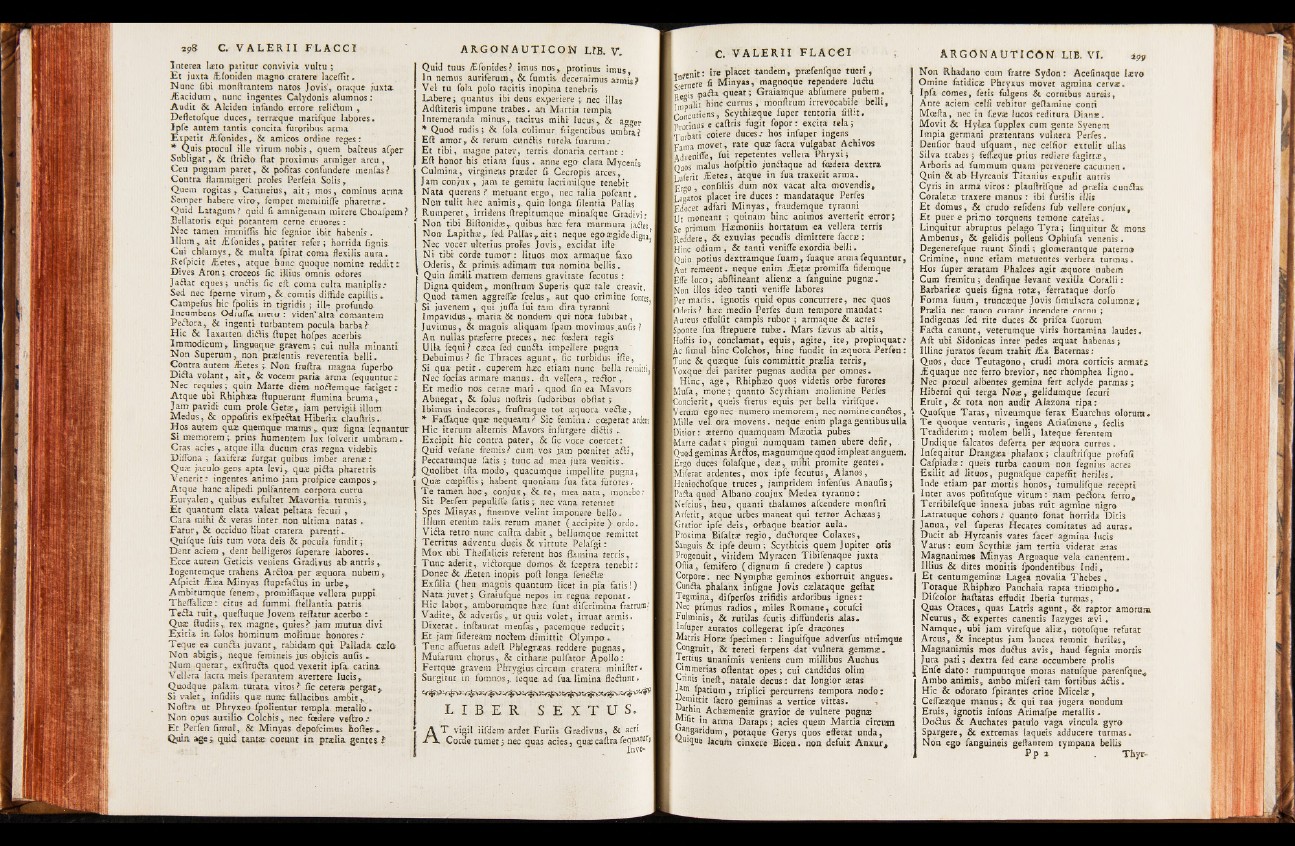 298 C. VALERII FLACCI
Interea læto patitur convivia vultu ;
Et juxta Æsoniden magno cratere lacessit.
Nunc sibi monstrantem natos Jovis, oraque juxta
Æacidum, nunc ingentes Calydonis alumnos :
Audit & Alciden infando errore relictum ,
Defletosque duces, terræque marisque labores.
Ipse autem tantis concita furoribus arma
Expetit Æsonides, & amicos ordine reges:
* Quis procul ille virum nobis, quem balteus asper
Subligat, & stricto stat proximus armiger arcu ,
Ceu pugnam paret, & positas confundere mensas?
Contra flammigeri proles Perseia Solis,
Quem rogitas, Carmeius, ait; mos, cominus arma
Semper habere viro, semper meminisse pharetræ.
Quid Latagum? quid si amnigenam mirere Choaspem?
Bellatoris equi potantem cerne cruores :
Nec tamen immissis hic segnior ibit habenis.
Illum, ait Æsonides, pariter refer; horrida signis
Cui chlamys, & multa spirat coma flexilis aura.
Respicit Æetes, atque hunc quoque nomine reddit:
Dives Aron; croceos sic illius omnis odores
Jactat eques; unctis sic est coma culta maniplis:
Sed nec sperne virum, & comtis diffide capillis.
Campesus hic spoliis in tigridis ; ille profundo
Incumbens Odrussa mero : viden' alta comantem
Pectora, & ingenti turbantem pocula barba?
Hic & Iaxarten dictis stupet hospes acerbis
Immodicum, linguoque gravem; cui nulla minanti
Non Superum, non prælentis reverentia belli.
Contra autem Æetes ; Non frustra magna superbo
Dicta volant, ait, & vocem paria arma sequuntur:
Nec requies; quin Marte diem noctemque fatiget:
Atque ubi Riphæa stupuerunt flumina bruma,
Jam pavidi cum prole Getæ, jam pervigil illum
Medus, & oppositis exspectat Hiberia claustris.
Hos autem quæ quemque manus, quæ signa sequantur
Si memorem; prius humentem lux solverit umbram.
Cras acies, atque illa ducum cras regna videbis
Dissona ; saxiferæ surgat quibus imber arenæ :
Quæ jaculo gens apta levi, quæ picta pharetris
Venerit: ingentes animo jam prospice campos,
Atque hanc alipedi pulsantem corpora curru
Euryalen, quibus exsultet Mavortia turmis,
Et quantum elata valeat peltata securi ,
Cara mihi & veras inter non ultima natas .
Fatur, & occiduo libat cratera parenti.
Quisque suis tum vota deis & pocula fundit;
Dent aciem, dent belligeros superare labores.
Ecce autem Geticis veniens Gradivus ab antris,
Ingentemque trahens Arctoa per æquora nubem,
Aspicit Ææa Minyas stupefactus in urbe,
Ambitumque senem, promissaque vellera puppi
Thessalicæ : citus ad summi stellantia patris
Tecta ruit, questuque Jovem testatur acerbo :
Quæ studiis, rex magne, quies? jam mutua divi
Exitia in solos hominum molimur honores :
Teque ea cuncta juvant, rabidam qui Pallada cælo
Non abigis, neque femineis jus objicis ausis .
Num querar, exstructa quod vexerit ipsa carina
Vellera sacra meis sperantem avertere lucis,
Quodque palam tutata viros? sic cetera pergat,
Si valet, insidiis quæ nunc fallacibus ambit,
Nostra ut Phryxeo spolientur templa metallo.
Non opus auxilio Colchis, nec fœdere vestro:
Et Persen simul, & Minyas deposcimus hostes.
Quin age; quid tantæ coeunt in prælia gentes ?
ARGONAUTICON LIB. V.
Quid tuus Æsonides? imus nos, protinus imus,
In nemus auriferum, & sumtis decernimus armis?
Vel tu sola polo tacitis inopina tenebris
Labere; quantus ibi deus experiere ; nec illas
Adstiteris impune trabes. an Martia templa
Intemeranda minus, tacitus mihi lucus, & agger
* Quod rudis; & sola colimur frigentibus umbra?
Est amor, & rerum cunctis tutela suarum:
Et tibi, magne pater, terris donaria certant :
Est honor his etiam suus. anne ego clara Mycenis
Culmina, virgineas præder si Cecropis arces,
Jam conjux, jam te gemitu lacrimisque tenebit
Nata querens? metuant ergo, nec talia poscant.
Non tulit hæc animis, quin longa silentia Pallas
Rumperet, irridens strepitumque minasque Gradivi:
Non tibi Bistonidæ, quibus hæc fera murmura jactes,
Non Lapithæ, sed Pallas, ait: neque ego ægide digna,
Nec vocer ulterius proles Jovis, excidat iste
Ni tibi corde tumor : lituos mox armaque faxo
Oderis, & primis adimam tua nomina bellis.
Quin simili matrem demens gravitate secutus :
Digna quidem, monstrum Superis quæ tale creavit.
Quod tamen aggresse scelus, aut quo crimine fontes,
Si juvenem, qui jussa sui tam dira tyranni
Impavidus, maria & nondum qui nota subibat,
Juvimus, & magnis aliquam spem movimus ausis ?
An nullas præferre preces, nec fœdera regis
Ulla sequi? cæca sed cuncta impellere pugna
Debuimus? sic Thraces agunt, sic turbidus iste,
Si qua petit. cuperem hæc etiam nunc bella remitti,
Nec socias armare manus. da vellera, rector,
Et medio nos cerne mari . quod sin ea Mavors
Abnegat, & solus nostris sudoribus obstat ;
Ibimus indecores, frustraque tot æquora vectæ,
* Fassaque quæ nequeam? Sic femina: cœperat ardens
Hic iterum alternis Mavors insurgere dictis .
Excipit hic contra pater, & sic voce coercet:
Quid vesane fremis? cum vos jam pœnitet acti,
Peccatumque satis ; tunc ad mea jura venitis.
Quolibet ista modo, quacumque impellite pugna,
Quæ cœpistis; habent quoniam sua fata furores.
Te tamen hoc, conjux, & te, mea nata, monebo:
Sit Persen pepulisse satis; nec vana retentet
Spes Minyas, finemve velint imponere bello.
Illum etenim talis rerum manet (accipite) ordo.
Victa retro nunc castra dabit, bellumque remittet
Territus adventu ducis & virtute Pelasgi :
Mox ubi Thessalicis referent hos flamina terris,
Tunc aderit, victorque domos & sceptra tenebit:
Donec & Æeten inopis post longa senectæ
Exsilia (heu magnis quantum licet in pia fatis!)
Nata juvet; Graiusque nepos in regna reponat.
Hic labor, amborumque hæc sunt discrimina fratrum:
Vadite, & adversis, ut quis volet, irruat armis.
Dixerat. instaurat mensas, pacemque reducit;
Et jam sideream noctem dimittit Olympo.
Tunc assuetus adest Phlegræas reddere pugnas,
Musarum chorus, & citharæ pulsator Apollo:
Fertque gravem Phrygius circum cratera minister.
Surgitur in somnos, seque ad sua limina flectunt.
LIBER SEXTUS.
AT vigil iisdem ardet Furiis Gradivus, & acri
Corde tumet; nec quas acies, quæ castra sequatur,
Inve-
C. VALERII FLACCI
Invenit: ire placet tandem, præsensque tueri,
Sternere si Minyas, magnoque rependere luctu
Regis pacta queat; Graiamque absumere pubem.
Impulit hinc currus, monstrum irrevocabile belli,
Concutiens, Scythiæque super tentoria sistit.
Protinus e castris fugit sopor : excita tela;
Turbati coiere duces: hos insuper ingens
Fama movet, rate quæ sacra vulgabat Achivos
Adrenisse, sui repetentes vellera Phryxi;
Quos malus hospitio junctaque ad fœdera dextra
Luserit Æetes, atque in sua traxerit arma.
Ergo, consiliis dum nox vacat alta movendis,
Legatos placet ire duces : mandataque Perses
Edocet adfari Minyas, fraudemque tyranni
Ut moneant ; quinam hinc animos averterit error;
Se primum Hæmoniis hortatum ea vellera terris
Reddere, & exuvias pecudis dimittere sacræ :
Hinc odium, & tanti venisse exordia belli.
Quin potius dextramque suam, suaque arma sequantur,
Aut remeent. neque enim Æetæ promissa fidemque
Esse loco; abstineant alienæ a sanguine pugnæ.
Non illos ideo tanti venisse labores
Per maris. ignotis quid opus concurrere, nec quos
Oderis? hæc medio Perses dum tempore mandat:
Aureus effulsit campis rubor ; armaque & acres
Sponte sua strepuere tubæ. Mars sævus ab altis,
Hostis io, conclamat, equis, agite, ite, propinquat:
Ac simul hinc Colchos, hinc fundit in æquora Persen:
Tunc & quæque suis committit prælia terris,
Voxque dei pariter pugnas audita per omnes.
Hinc, age, Rhiphæo quos videris orbe furores
Musa, mone; quanto Scythiam molimine Perses
Concierit, queis fretus equis per bella virisque.
Verum ego nec numero memorem, nec nomine cunctos,
Mille vel ora movens. neque enim plaga gentibus ulla
Ditior: æterno quamquam Mæotia pubes
Marte cadat; pingui numquam tamen ubere desit,
Quod geminas Arctos, magnumque quod impleat anguem.
Ergo duces solasque, deæ, mihi promite gentes.
Miserat ardentes, mox ipse secutus, Alanos,
Heniochosque truces, jampridem infensus Anausis;
Pacta quod Albano conjux Medea tyranno:
Nescius, heu, quanti thalamos ascendere monstri
Arserit, atque urbes maneat qui terror Achæas;
Gratior ipse deis, orbaque beatior aula.
Proxima Bisaltæ regio, ductorque Colaxes,
Sanguis & ipse deum; Scythicis quem Jupiter oris
Progenuit, viridem Myracen Tibisenaque juxta
Ostia, semifero ( dignum si credere ) captus
Corpore. nec Nymphæ geminos exhorruit angues.
Cuncta phalanx insigne Jovis cælataque gestat
Tegmina, dispersos trifidis ardoribus ignes:
Nec primus radios, miles Romane, corusci
Fulminis, & rutilas scutis diffunderis alas.
Insuper auratos collegerat ipse dracones
Matris Horæ specimen : linguisque adversus utrimque
Congruit, & tereti serpens dat vulnera gemmæ.
Tertius unanimis veniens cum millibus Auchus
Cimmerias ostentat opes; cui candidus olim
Crinis inest, natale decus: dat longior ætas
Jam spatium, triplici percurrens tempora nodo:
Demittit sacro geminas a vertice vittas.
Dathin Achæmeniæ gravior de vulnere pugnæ
Misit in arma Daraps; acies quem Martia circum
Gangaridum, potaque Gerys quos efferat unda,
Quique lacum cinxere Bicen. non defuit Anxur,
ARGONAUTICON LIB. VI. 299
Non Rhadano cum fratre Sydon: Acesinaque lævo
Omine fatidicæ Phryxus movet agmina cervæ.
Ipsa comes, setis fulgens & cornibus aureis,
Ante aciem celsi vehitur gestamine conti
Mœsta, nec in sævæ lucos reditura Dianæ.
Movit & Hylæa supplex cum gente Syenem
Impia germani prætentans vulnera Perses.
Densior haud usquam, nec celsior extulit ullas
Silva trabes; fessæque prius rediere sagittæ,
Arboris ad summum quam pervenere cacumen.
Quin & ab Hyrcanis Titanius expulit antris
Cyris in arma viros: plaustrisque ad prælia cunctas
Coraletæ traxere manus: ibi sutilis illis
Et domus, & crudo residens sub vellere conjux,
Et puer e primo torquens temone cateias.
Linquitur abruptus pelago Tyra; linquitur & mons
Ambenus, & gelidis pollens Ophiusa venenis.
Degeneresque ruunt Sindi; glomerantque paterno
Crimine, nunc etiam metuentes verbera turmas.
Hos super æratam Phalces agit æquore nubem
Cum fremitu; densique levant vexilla Coralli :
Barbaricæ queis signa rotæ, ferrataque dorso
Forma suum, truncæque Jovis simulacra columnæ;
Prælia nec rauco curant incendere cornu ;
Indigenas sed rite duces & prisca suorum
Facta canunt, veterumque viris hortamina laudes.
Ast ubi Sidonicas inter pedes æquat habenas;
Illinc juratos secum trahit Æa Baternas:
Quos, duce Teutagono, crudi mora corticis armat;
Æquaque nec ferro brevior, nec rhomphea ligno.
Nec procul albentes gemina fert aclyde parmas;
Hiberni qui terga Noæ, gelidumque securi
Eruit, & tota non audit Alazona ripa:
Quosque Taras, niveumque ferax Euarchus olorum.
Te quoque venturis, ingens Ariasmene, seclis
Tradiderim; molem belli, lateque ferentem
Undique falcatos deserta per æquora currus.
Insequitur Drangæa phalanx; claustrisque profusi
Caspiadæ: queis turba canum non segnius acres
Exsilit ad lituos, pugnasque capessit heriles.
Inde etiam par mortis honos, tumulisque recepti
Inter avos positusque virum: nam pectora ferro,
Terribilesque innexa jubas ruit agmine nigro
Latratuque cohors: quanto sonat horrida Ditis
Janua, vel superas Hecates comitatus ad auras.
Ducit ab Hyrcanis vates sacer agmina lucis
Varus: eum Scythiæ jam tertia viderat ætas
Magnanimos Minyas Argoaque vela canentem.
Illius & dites monitis spondentibus Indi,
Et centumgeminæ Lagea novalia Thebes,
Totaque Rhiphæo Panchaia rapta triumpho.
Discolor hastatas effudit Iberia turmas,
Quas Otaces, quas Latris agunt, & raptor amorum
Neurus, & expertes canentis Iazyges ævi.
Namque, ubi jam viresque aliæ, notosque refutat
Arcus, & inceptus jam lancea temnit heriles;
Magnanimis mos ductus avis, haud segnia mortis
Jura pati; dextra sed caræ occumbere prolis
Ense dato: rumpuntque moras natusque parensque,
Ambo animis, ambo miseri tam fortibus actis.
Hic & odorato spirantes crine Micelæ,
Cessææque manus; & qui tua jugera nondum
Eruis, ignotis insons Arimaspe metallis.
Doctus & Auchates patulo vaga vincula gyro
Spargere, & extremas laqueis adducere turmas.
Non ego sanguineis gestantem tympana bellis
Pp 2 Thyr-